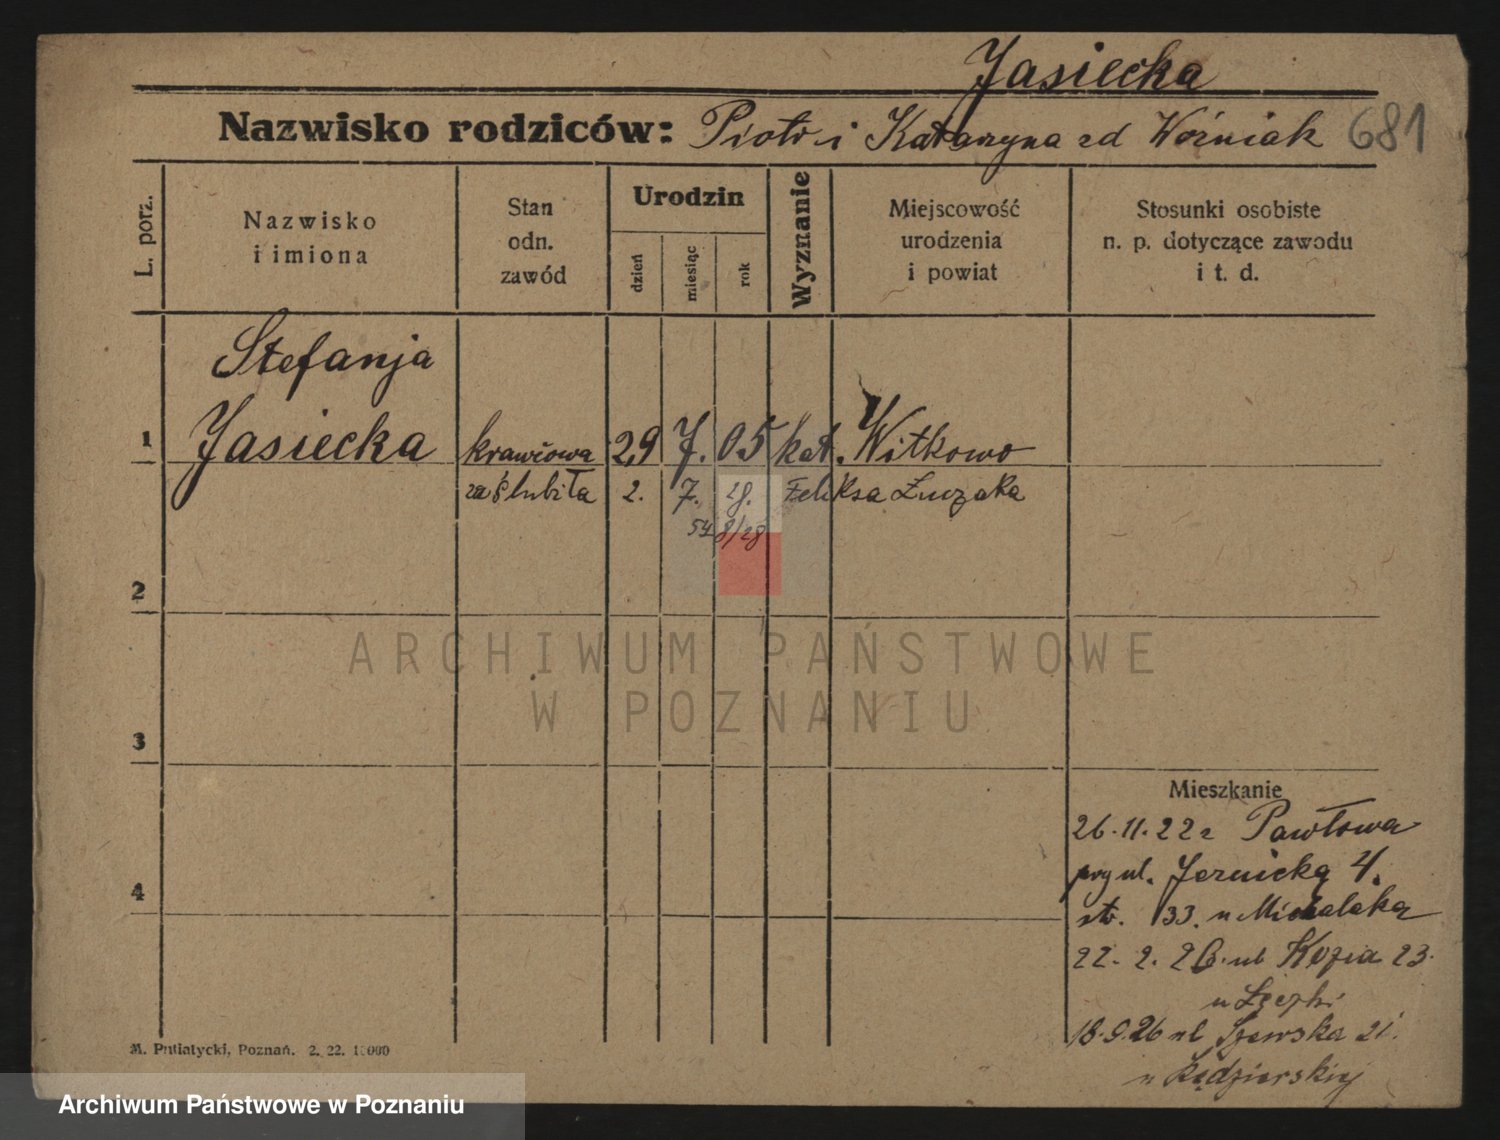 Jasiecka
Nazwisko rodziców: Piotr i Katarzyna zd Woźniak 681
L. porz.
Nazwisko
i imiona
Stan
odn.
zawód
Urodzin
dzień
miesiąc
rok
Wyznanie
Miejscowość
urodzenia
i powiat
Stosunki osobiste
n. p. dotyczące zawodu
i t. d.
Stefanja
1 Jasiecka krawcowa 29 7. 05 kat. Witkowo
zaślubiła 2. 7. 28. Feliksa Łuczaka
548/28
2
ARCHIWUM PAŃSTWOWE
W POZNANIU
3
4
Mieszkanie
26.11.22 z Pawłowa
przy ul. 4.
str. 33. u Michalaka
22. 2. 26. ul Kozia 23.
u
18.9.26 ul Szewska 21.
u Kędzierskiej
M. Putiatycki, Poznań. 2. 22. 10000
Archiwum Państwowe w Poznaniu